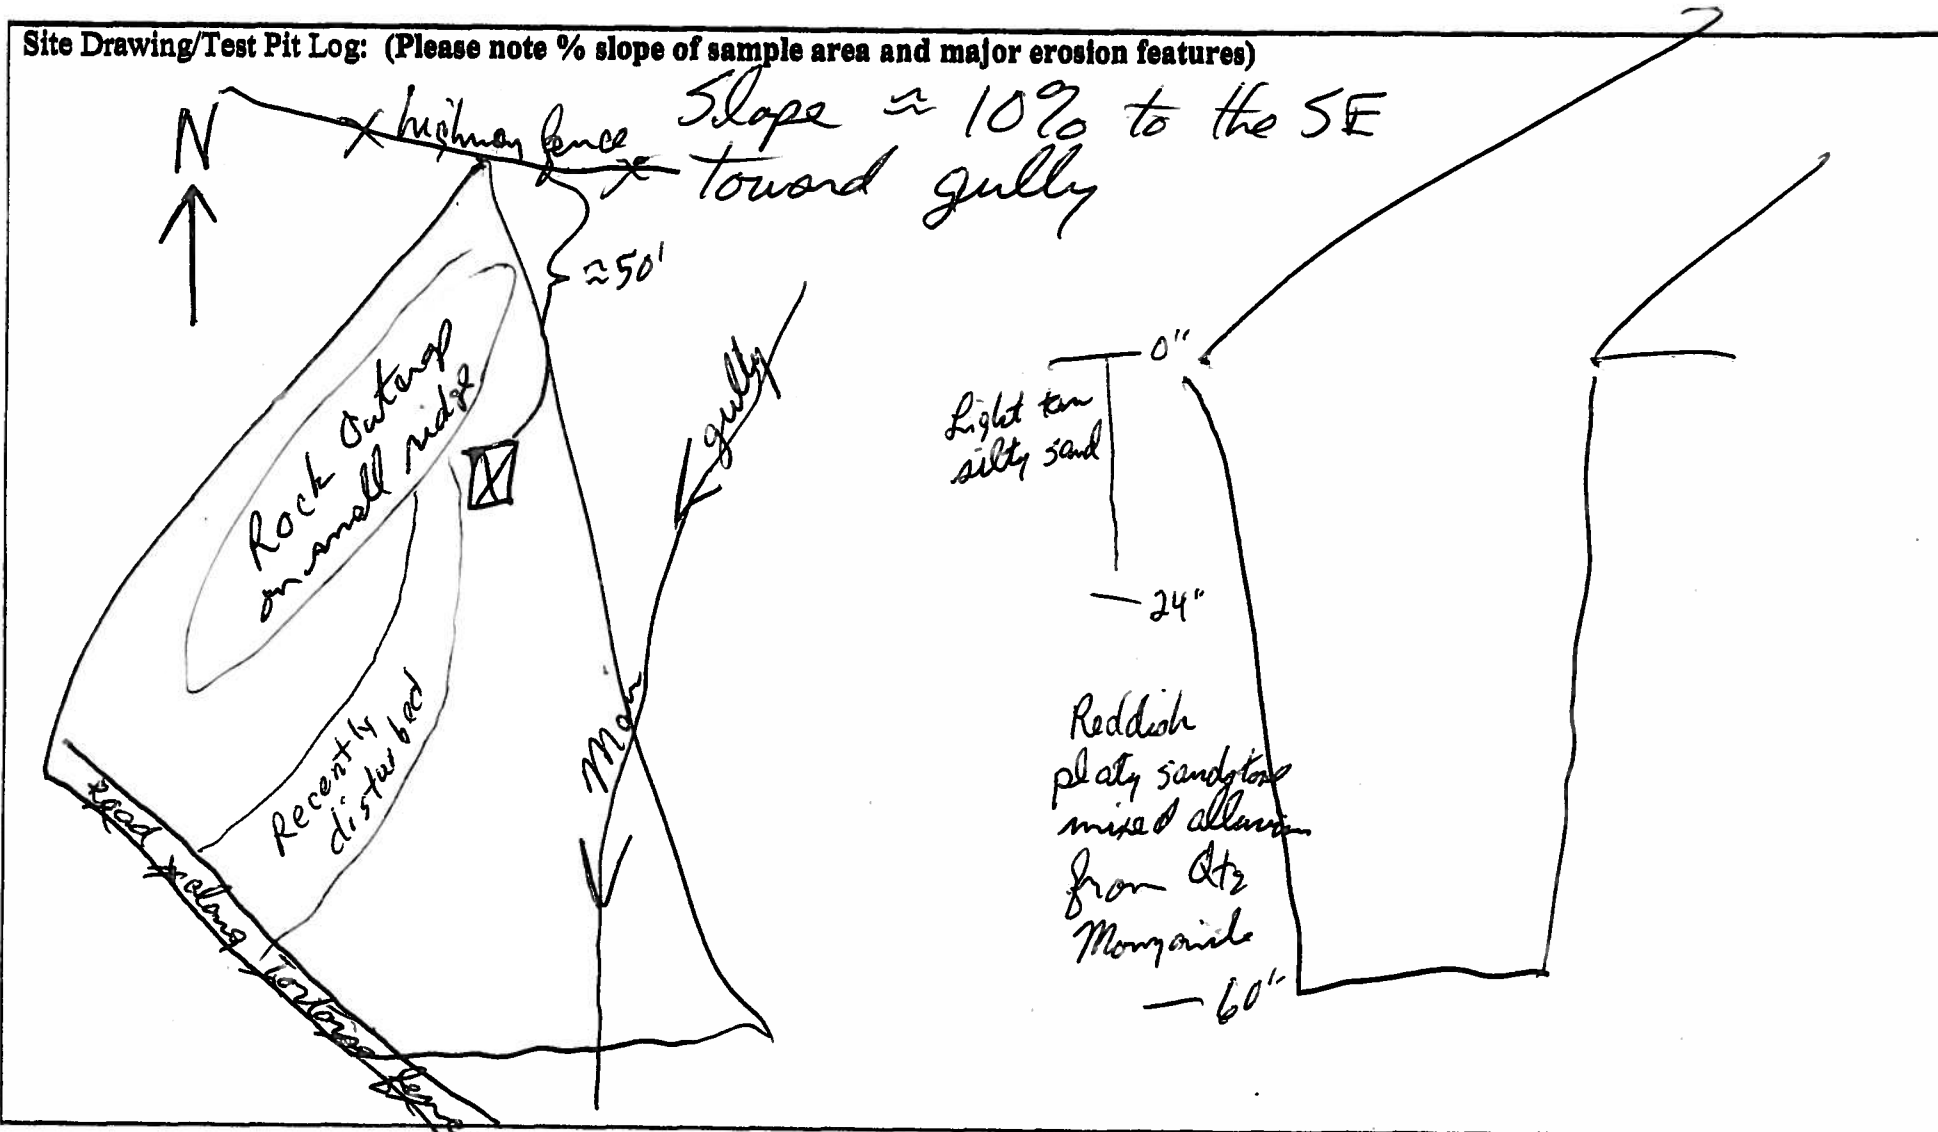 Site Drawing/Test Pit Log: (Please note % slope of sample area and major erosion features)
N
highway fence
Slope ≈ 10% to the SE
toward gully
≈50'
Rock Outcrop
on small ridge
Main gully
Recently
disturbed
Road along Tortoise fence
0"
Light tan
silty sand
24"
Reddish
platy sandstone
mixed alluvium
from Qtz
Monzonite
60"